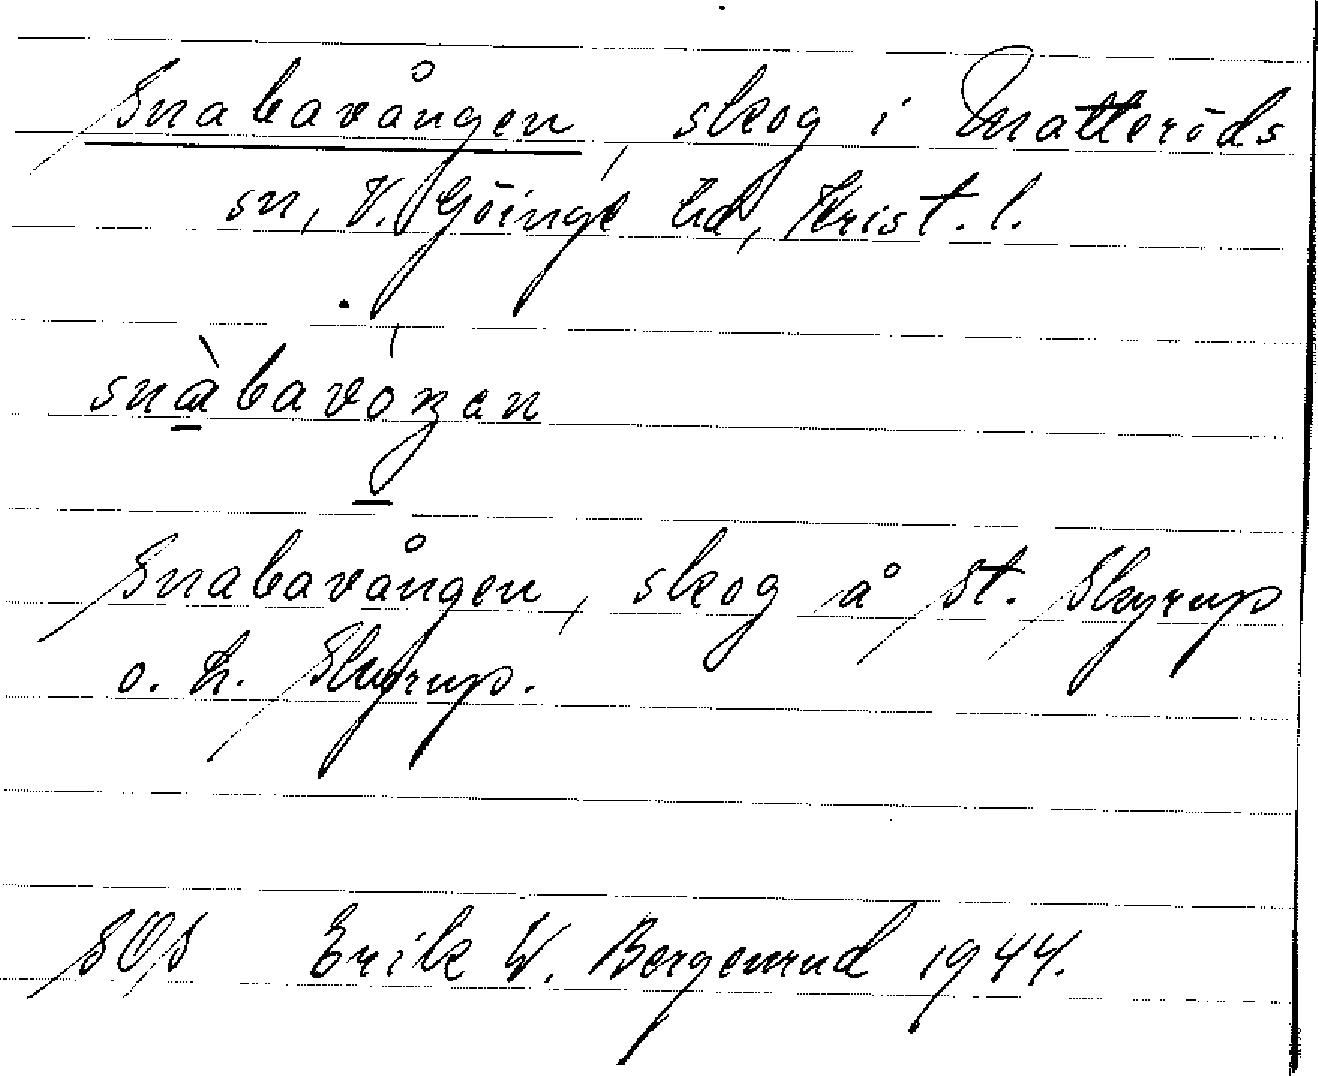 Snabavången, skog i Matteröds
sn, V. Göinge hd, Krist. l.
snàbavóŋen
Snabavången, skog å St. Skyrup
o. L. Skyrup.
SOS Erik W. Bergenrud 1944.